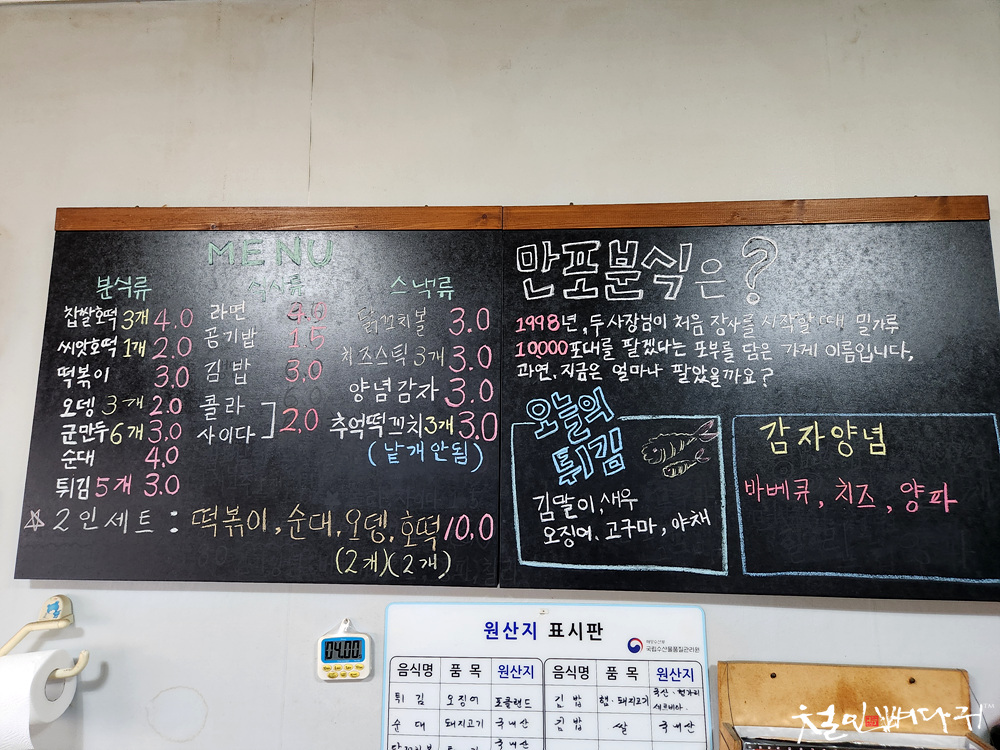 MENU
분식류
찹쌀호떡 3개 4.0
씨앗호떡 1개 2.0
떡볶이 3.0
오뎅 3개 2.0
군만두 6개 3.0
순대 4.0
튀김 5개 3.0
식사류
라면 3.0
공기밥 1.5
김밥 3.0
콜라
사이다 ] 2.0
스낵류
닭꼬치볼 3.0
치즈스틱 3개 3.0
양념감자 3.0
추억떡꼬치 3개 3.0
(낱개 안됨)
☆ 2인세트 : 떡볶이, 순대, 오뎅, 호떡 10.0
(2개)(2개)
만포분식은?
1998년, 두 사장님이 처음 장사를 시작할 때 밀가루
10000포대를 팔겠다는 포부를 담은 가게 이름입니다,
과연, 지금은 얼마나 팔았을까요?
오늘의
튀김
김말이, 새우
오징어, 고구마, 야채
감자양념
바베큐, 치즈, 양파
04.00
원산지 표시판
해양수산부
국립수산물품질관리원
음식명 품목 원산지 음식명 품목 원산지
튀김 오징어 포클랜드 김밥 햄·돼지고기
순대 돼지고기 국내산 김밥 쌀 국내산
국내산
철인뼈다귀